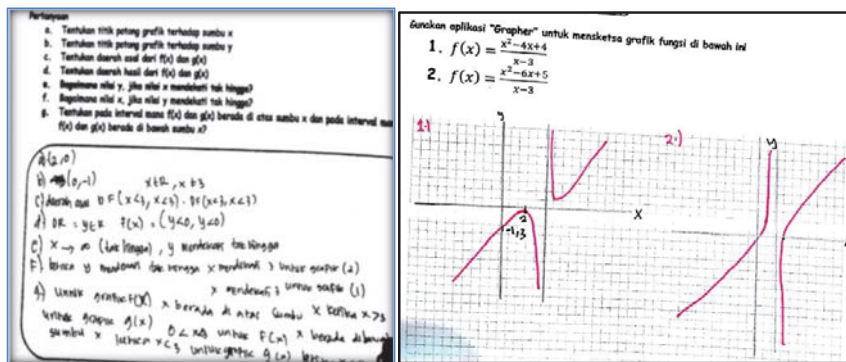 Pertanyaan
a. Tentukan titik potong grafik terhadap sumbu x
b. Tentukan titik potong grafik terhadap sumbu y
c. Tentukan daerah asal dari f(x) dan g(x)
d. Tentukan daerah hasil dari f(x) dan g(x)
e. Bagaimana nilai y, jika nilai x mendekati tak hingga?
f. Bagaimana nilai x, jika nilai y mendekati tak hingga?
g. Tentukan pada interval mana f(x) dan g(x) berada di atas sumbu x dan pada interval
f(x) dan g(x) berada di bawah sumbu x?
a) (2,0)
b) (0,-1) x∈R, x≠3
c) daerah asal DF (x<3, x<3). DF (x<3, x<3)
d) DR = y∈R F(x) = (y<0, y<0)
e) x → ∞ (tak hingga), y mendekati tak hingga
F) ketika y mendekati tak hingga x mendekati 3 untuk grafik (2)
x mendekati 3 untuk grafik (1)
g) Untuk grafik F(x) x berada di atas sumbu x ketika x>3
untuk grafik g(x) 0<x untuk F(x) x berada di bawah
sumbu x ketika x<3 untuk grafik g(x)
Gunakan aplikasi "Grapher" untuk mensketsa grafik fungsi di bawah ini
1. f(x) = x²−4x+4 / x−3
2. f(x) = x²−6x+5 / x−3
1.)
y
2
-1,3
X
2.)
y